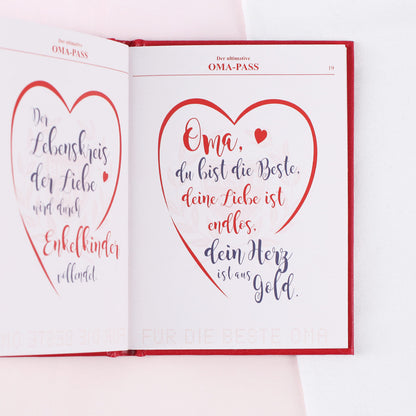 Der ultimative
OMA-PASS
Der
Lebenskreis
der Liebe
wird durch
Enkelkinder
vollendet.
Der ultimative
OMA-PASS
19
Oma,
du bist die Beste,
deine Liebe ist
endlos,
dein Herz
ist aus
Gold.
FÜR DIE BESTE OMA